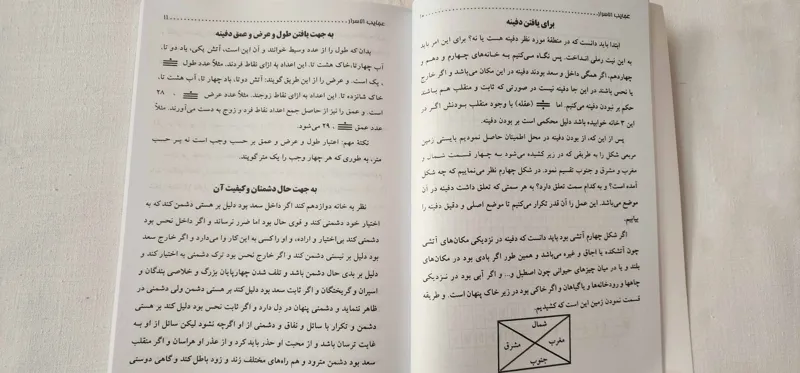 عجایب الاسرار
برای یافتن دفینه
ابتدا باید دانست که در منطقهٔ مورد نظر دفینه هست یا نه؟ برای این امر باید
به این نیت رملی انداخت. پس نگاه می‌کنیم به خانه‌های چهارم و دهم و
چهاردهم، اگر همگی داخل و سعد بودند دفینه در این مکان می‌باشد و اگر خارج
یا نحس باشند در این جا دفینه نیست در صورتی که ثابت و منقلب هم باشند
حکم بر نبودن دفینه می‌کنیم. اما (عقله) با وجود منقلب بودنش اگر در
این ۳ خانه خوابیده باشد دلیل محکمی است بر بودن دفینه.
پس از این که، از بودن دفینه در محل اطمینان حاصل نمودیم بایستی زمین
مربعی شکل را به طریقی که در زیر کشیده می‌شود سه چهار قسمت شمال و
مغرب و مشرق و جنوب تقسیم نمود. در شکل چهارم نظر می‌نماییم که چه شکل
آمده است؟ و به کدام سمت تعلق دارد؟ به هر سمتی که تعلق داشت دفینه در آن
موضع می‌باشد. این عمل را آن قدر تکرار می‌کنیم تا موضع اصلی و دقیق دفینه را
بیابیم.
اگر شکل چهارم آتشی بود باید دانست که دفینه در نزدیکی مکان‌های آتشی
چون آتشکده یا اجاق و غیره می‌باشد و همین طور اگر بادی بود در مکان‌های
بلند و یا در میان چیزهای حیوانی چون اصطبل و.. و اگر آبی بود در نزدیکی
چاهها و رودخانه‌ها و یاگیاهان و اگر خاکی بود در زیر خاک پنهان است. و طریقه
قسمت نمودن زمین این است که کشیدیم.
شمال
مغرب
مشرق
جنوب
عجایب الاسرار ۱۱
به جهت یافتن طول و عرض و عمق دفینه
بدان که طول را از عدد وسیط خوانند و آن این است، آتش یکی، یاد دو تا،
آب چهارتا، خاک هشت تا. این اعداد به ازای نقاط فردند. مثلاً عدد طول
، یک است. و عرض را از این طریق گویند: آتش دوتا، باد چهار تا، آب هشت تا،
خاک شانزده تا. این اعداد به ازای نقاط زوجند. مثلاً عدد عرض ، ۲۸
است. و عمق را نیز از حاصل جمع اعداد نقاط فرد و زوج به دست می‌آورند. مثلاً
عدد عمق ، ۲۹ می‌شود.
نکتهٔ مهم: اعتبار طول و عرض و عمق بر حسب وجب است نه بر حسب
متر، به طوری که هر چهار وجب را یک متر گویند.
به جهت حال دشمنان و کیفیت آن
نظر به خانه دوازدهم کند اگر داخل سعد بود دلیل بر هستی دشمن کند که به
اختیار خود دشمنی کند و قوی حال بود اما ضرر نرساند و اگر داخل نحس بود
دشمنی کند بی‌اختیار و اراده، و او راکسی به این کار وا می‌دارد و اگر خارج سعد
بود دلیل بر نیستی دشمن کند و اگر خارج نحس بود ترک دشمنی به ناخند کند و
دلیل بر بدی حال دشمن باشد و تلف شدن چهارپایان بزرگ و خلاصی بندگان و
اسیران و گریختگان و اگر ثابت سعد بود دلیل کند بر هستی دشمن ولی دشمنی در
ظاهر ننماید و دشمنی پنهان در دل دارد و اگر ثابت نحس بود دلیل کند بر هستی
دشمن و تکرار با سائل و نفاق و دشمنی از او اگرچه نشود لیکن سائل از او به
غایت ترسان باشد و از محبت او حذر باید کرد و از عذر او هراسان و اگر منقلب
سعد بود دشمن مترود و هم راه‌های مختلف زند و زود باطل کند و گاهی دوستی